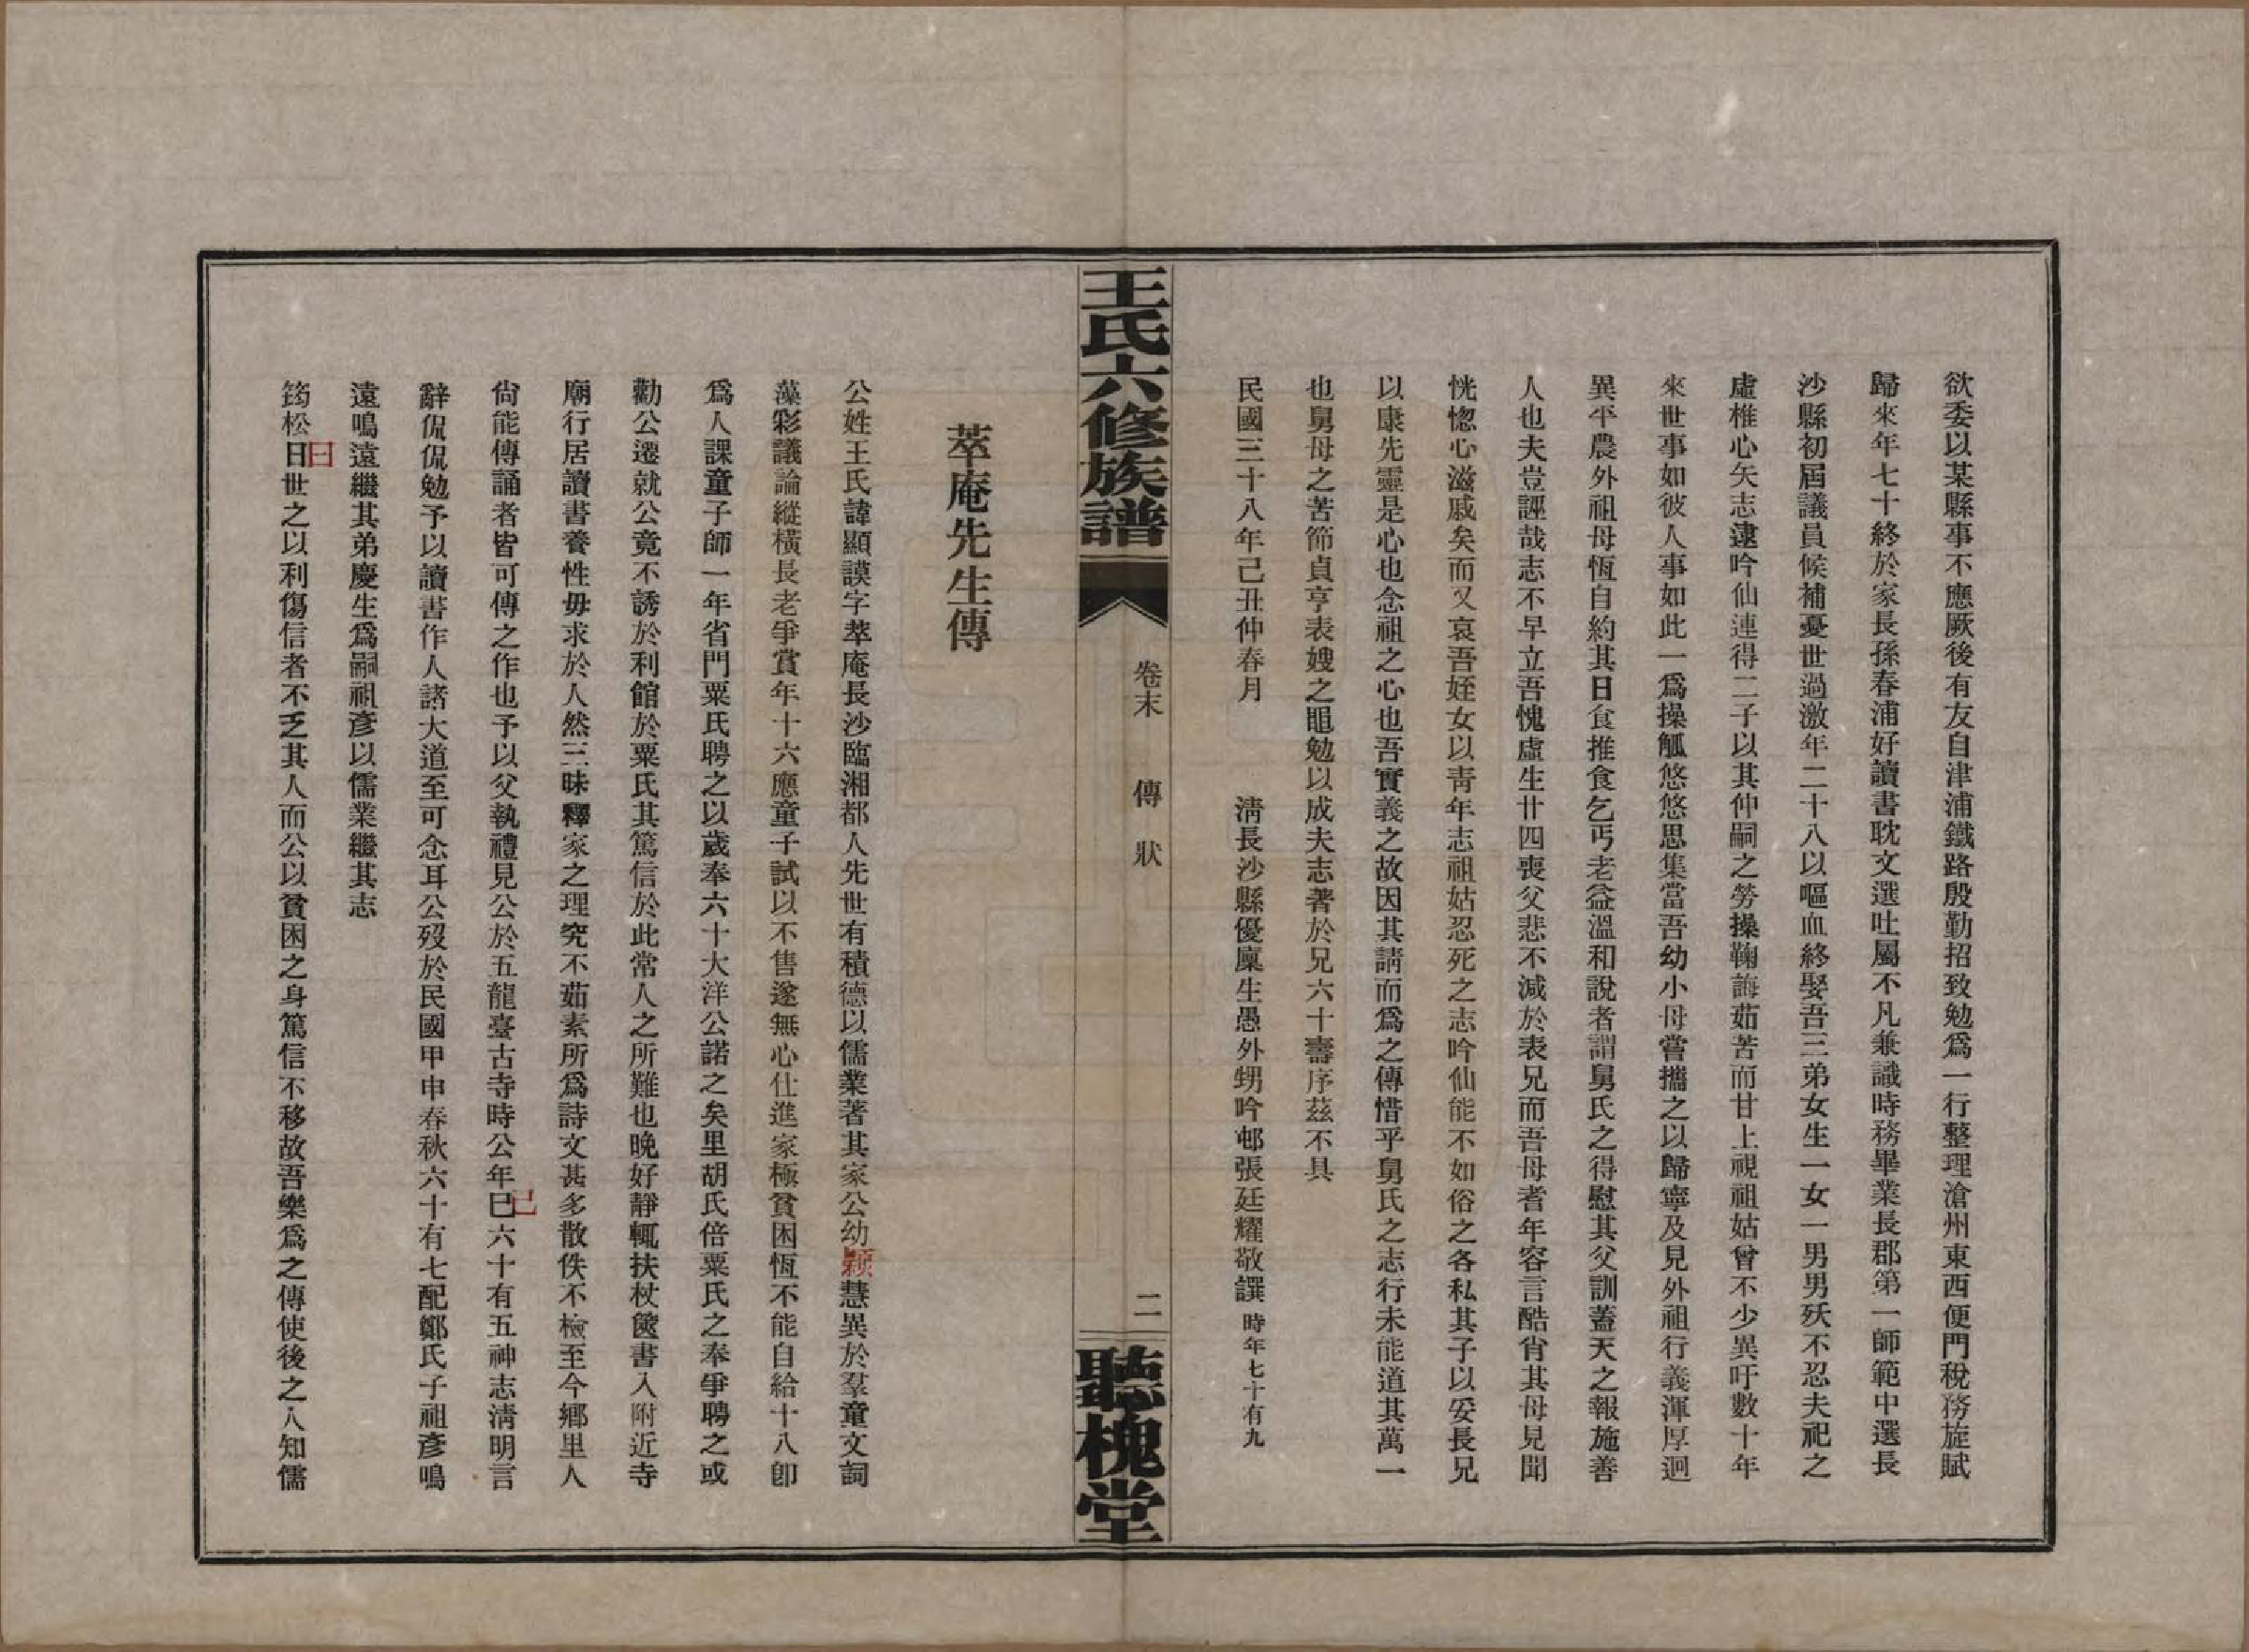 欲委以某縣事不應厥後有友自津浦鐵路殷勤招致勉爲一行整理滄州東西便門稅務旋賦
歸來年七十終於家長孫春浦好讀書耽文選吐屬不凡兼識時務畢業長郡第一師範中選長
沙縣初屆議員候補憂世過激年二十八以嘔血終娶吾三弟女生一女一男男殀不忍夫祀之
虛椎心矢志逮吟仙連得二子以其仲嗣之勞操鞠誨茹苦而甘上視祖姑曾不少異吁數十年
來世事如彼人事如此一爲操觚悠悠思集當吾幼小母嘗攜之以歸寧及見外祖行義渾厚迥
異平農外祖母恆自約其日食推食乞丐老益溫和說者謂舅氏之得慰其父訓蓋天之報施善
人也夫豈誣哉志不早立吾愧虛生廿四喪父悲不減於表兄而吾母耆年容言酷肖其母見聞
恍惚心滋戚矣而又哀吾姪女以青年志祖姑忍死之志吟仙能不如俗之各私其子以妥長兄
以康先靈是心也念祖之心也吾實義之故因其請而爲之傳惜乎舅氏之志行未能道其萬一
也舅母之苦節貞亨表嫂之黽勉以成夫志著於兄六十壽序茲不具
民國三十八年己丑仲春月　清長沙縣優廩生愚外甥吟邨張廷耀敬譔時年七十有九
王氏六修族譜　卷末　傳　狀　二　聽槐堂
萃庵先生傳
公姓王氏諱顯謨字萃庵長沙臨湘都人先世有積德以儒業著其家公幼穎慧異於羣童文詞
藻彩議論縱橫長老爭賞年十六應童子試以不售遂無心仕進家極貧困恆不能自給十八卽
爲人課童子師一年省門粟氏聘之以歲奉六十大洋公諾之矣里胡氏倍粟氏之奉爭聘之或
勸公遷就公竟不誘於利館於粟氏其篤信於此常人之所難也晚好靜輒扶杖篋書入附近寺
廟行居讀書養性毋求於人然三昧釋家之理究不茹素所爲詩文甚多散佚不檢至今鄉里人
尙能傳誦者皆可傳之作也予以父執禮見公於五龍臺古寺時公年巳已六十有五神志淸明言
辭侃侃勉予以讀書作人諸大道至可念耳公歿於民國甲申春秋六十有七配鄭氏子祖彥鳴
遠鳴遠繼其弟慶生爲嗣祖彥以儒業繼其志
筠松日曰世之以利傷信者不乏其人而公以貧困之身篤信不移故吾樂爲之傳使後之人知儒